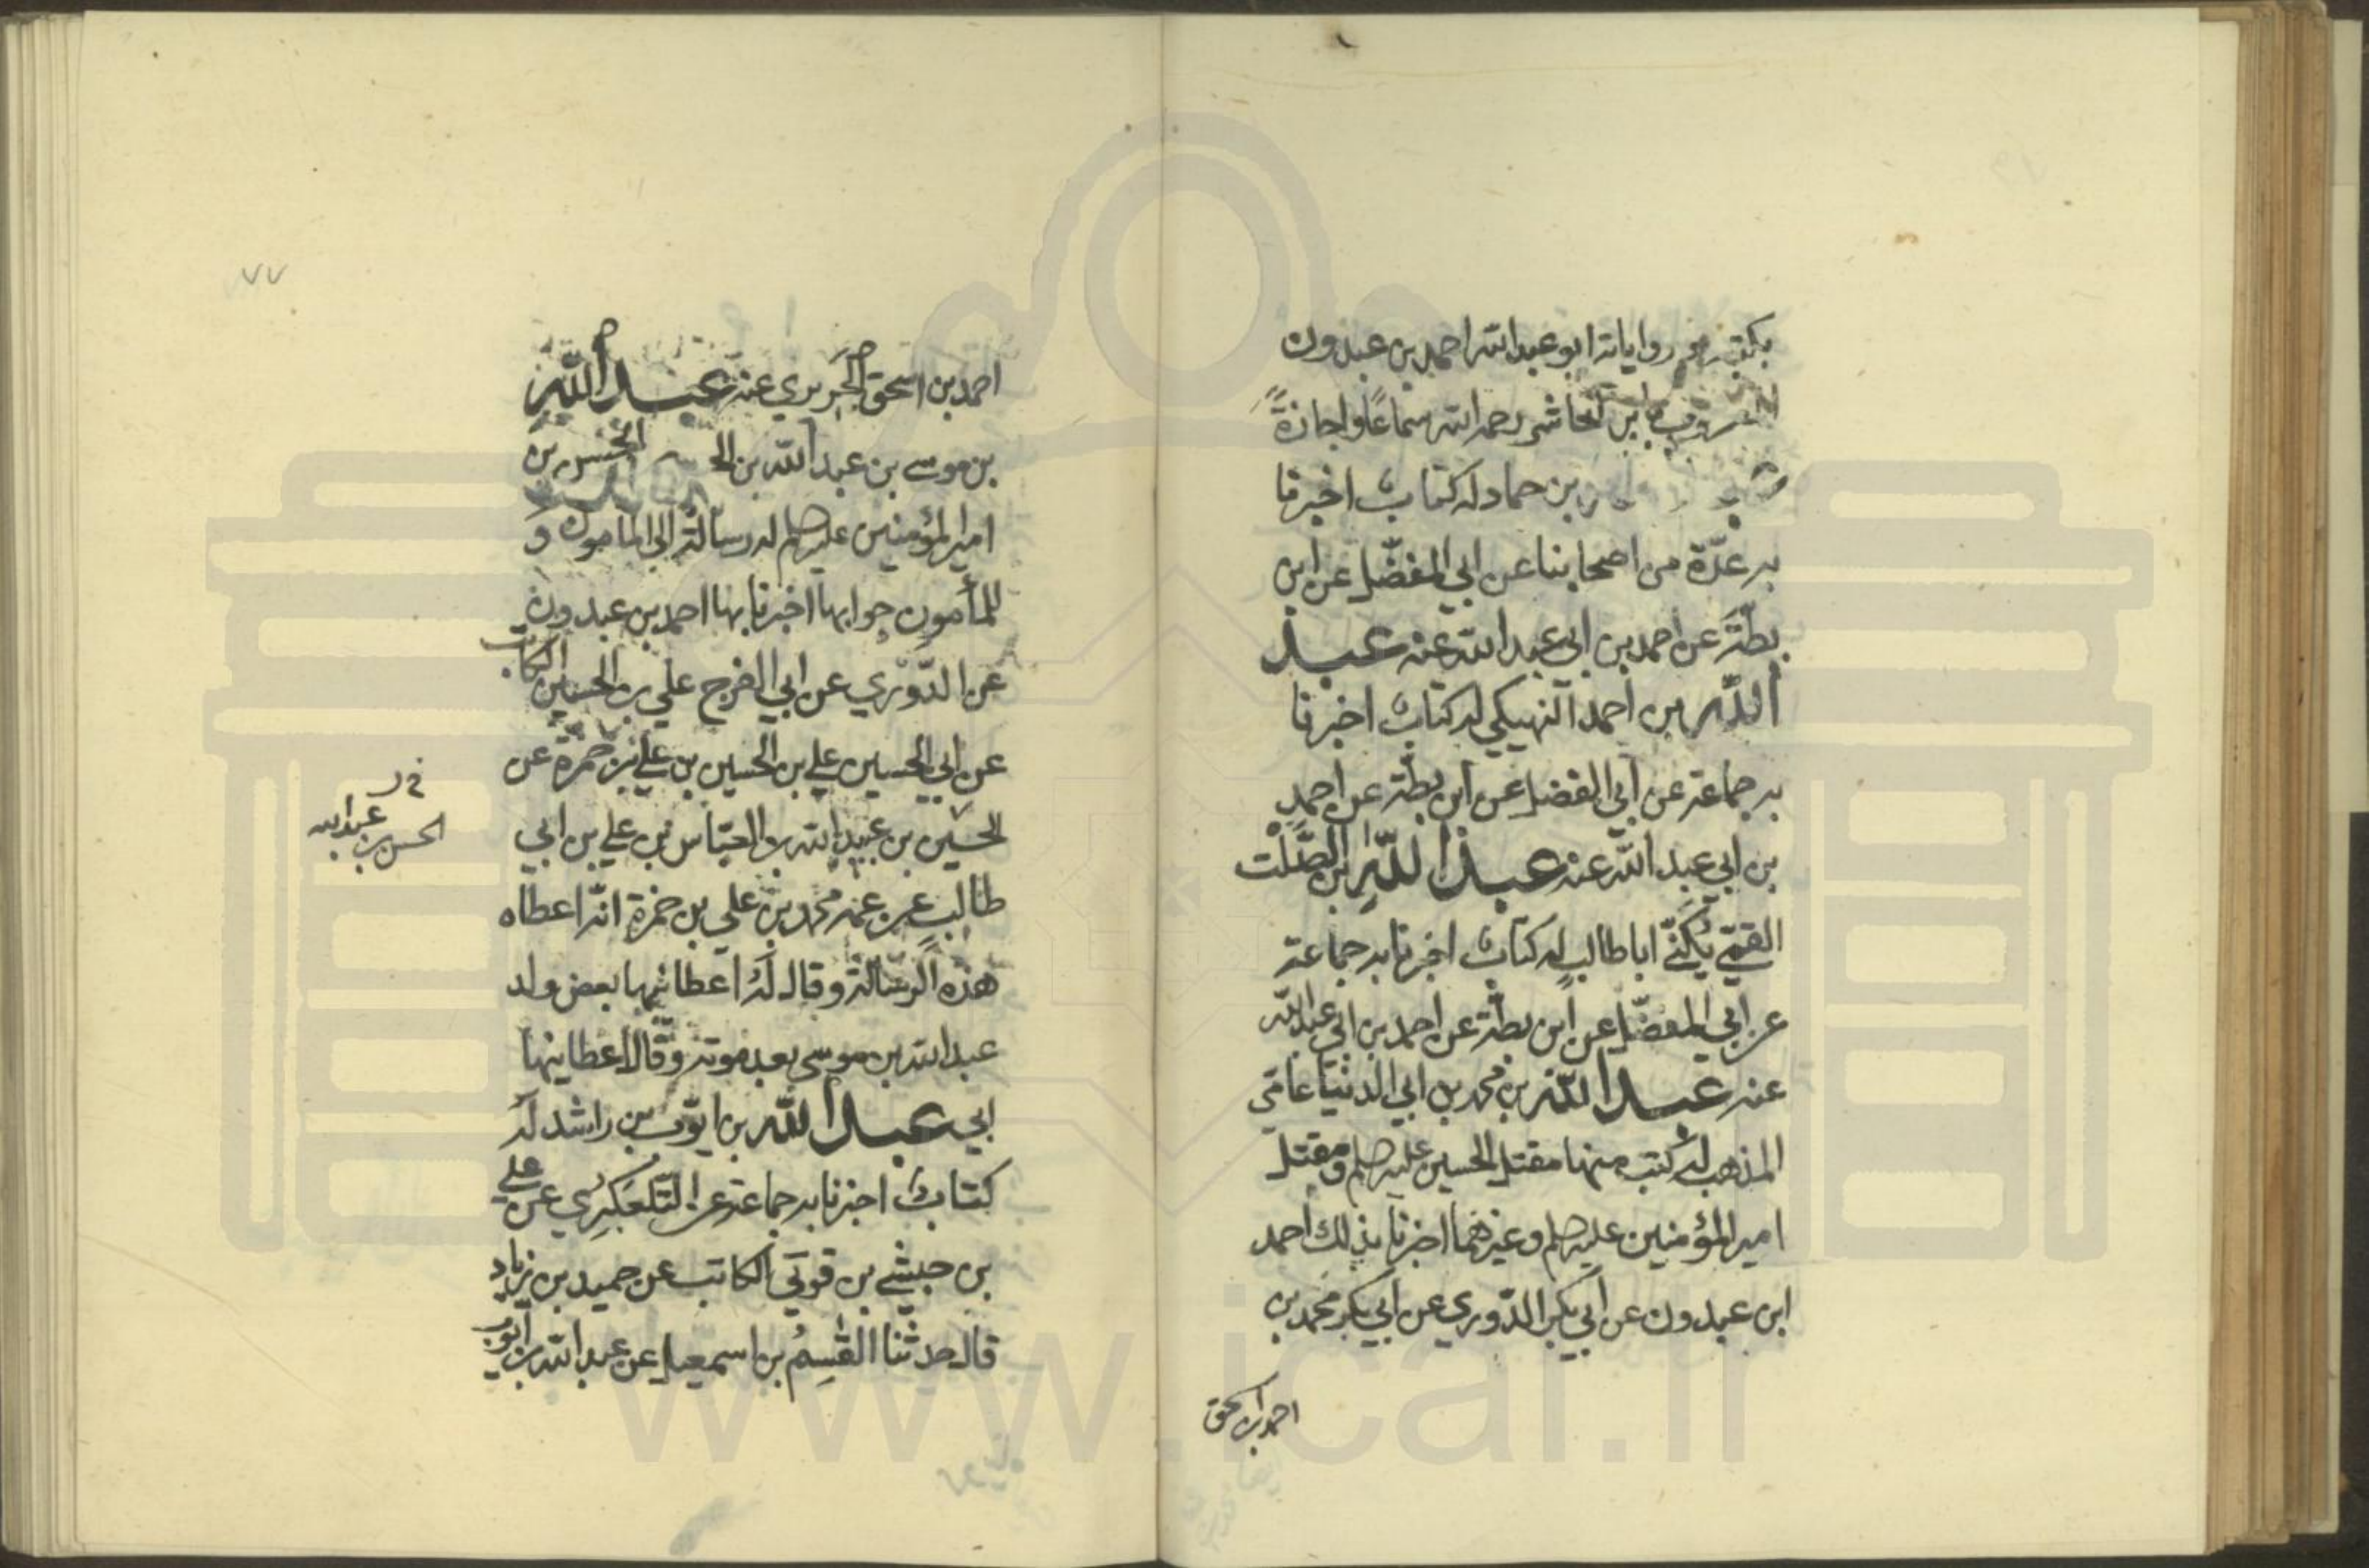 بكتبه ورواياته ابو عبد الله احمد بن عبدون
المعروف بابن الحاشر رحمه الله سماعًا واجازةً
بن حماد له كتاب اخبرنا
به عدّة من اصحابنا عن ابي المفضّل عن ابن
بطّة عن احمد بن ابي عبد الله عنه عبد
الله بن احمد النهيكي له كتاب اخبرنا
به جماعة عن ابي الفضل عن ابن بطة عن احمد
بن ابي عبد الله عنه عبد اللّه بن الصَّلت
القمّي يُكنّى ابا طالب له كتاب اخبرنا به جماعة
عن ابي المفضّل عن ابن بطة عن احمد بن ابي عبد الله
عنه عبد اللّه بن محمد بن ابي الدنيا عامّي
المذهب له كتب منها مقتل الحسين عليه صلم ومقتل
امير المؤمنين عليه صلم وغيرهما اخبرنا بذلك احمد
ابن عبدون عن ابي بكر الدّوري عن ابي بكر محمد بن
احمد بن اسحق
٧٧
احمد بن اسحق الجَريري عنه عبد اللّه
بن موسى بن عبد اللّه بن الحسن بن
امير المؤمنين عليهم صلم له رسالة الى المامون و
للمأمون جوابها اخبرنا بها احمد بن عبدون
عن الدّوري عن ابي الفرج علي بن الحسين الكاتب
عن ابي الحسين علي بن الحسين بن علي بن حمزة عن
الحسين بن عبيد الله بن العبّاس بن علي بن ابي
طالب عن عمه محمد بن علي بن حمزة انّه اعطاه
هذه الرسالة وقال له اعطانيها بعض ولد
عبد الله بن موسى بعد موته وقال اعطانيها
ابي عبد اللّه بن ايّوب بن راشد له
كتاب اخبرنا به جماعة عن التلعكبري عن علي
بن حبشي بن قوني الكاتب عن حميد بن زياد
قال حدثنا القسم بن اسمعيل عن عبد الله بن ايوب
الحسن بن عبد الله
www.icar.ir